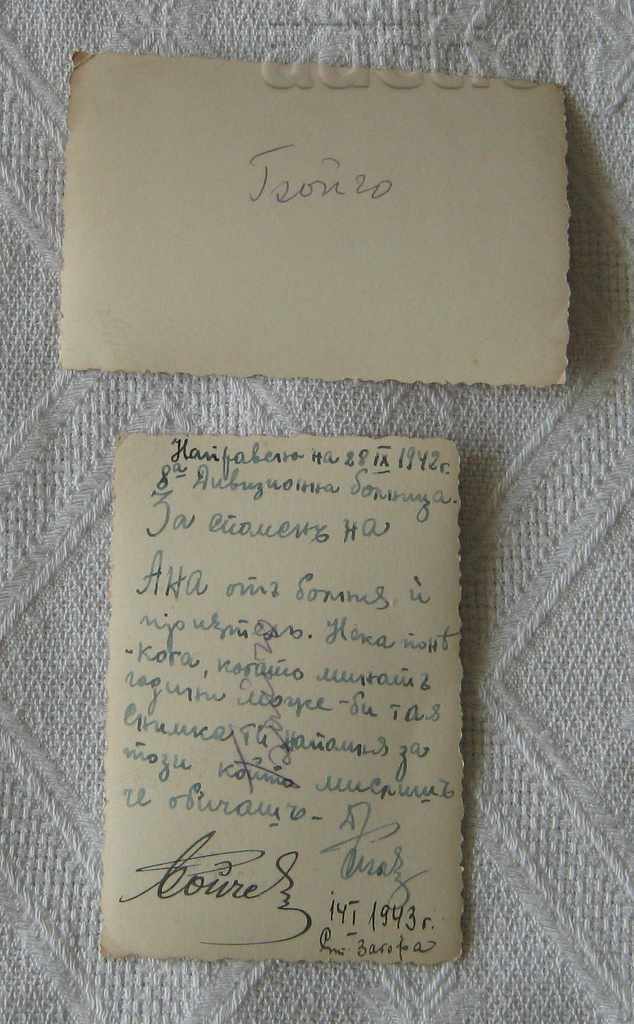 Направено на 28 IX 1942 г.
8ª Дивизионна болница.
За споменъ на
АНА отъ болния ѝ
приятель. Нека понѣ
-кога, когато минатъ
години може-би тая
снимка ти напомня за
този който мислишъ
че обичашъ-
14 I 1943 г.
Ст. Загора